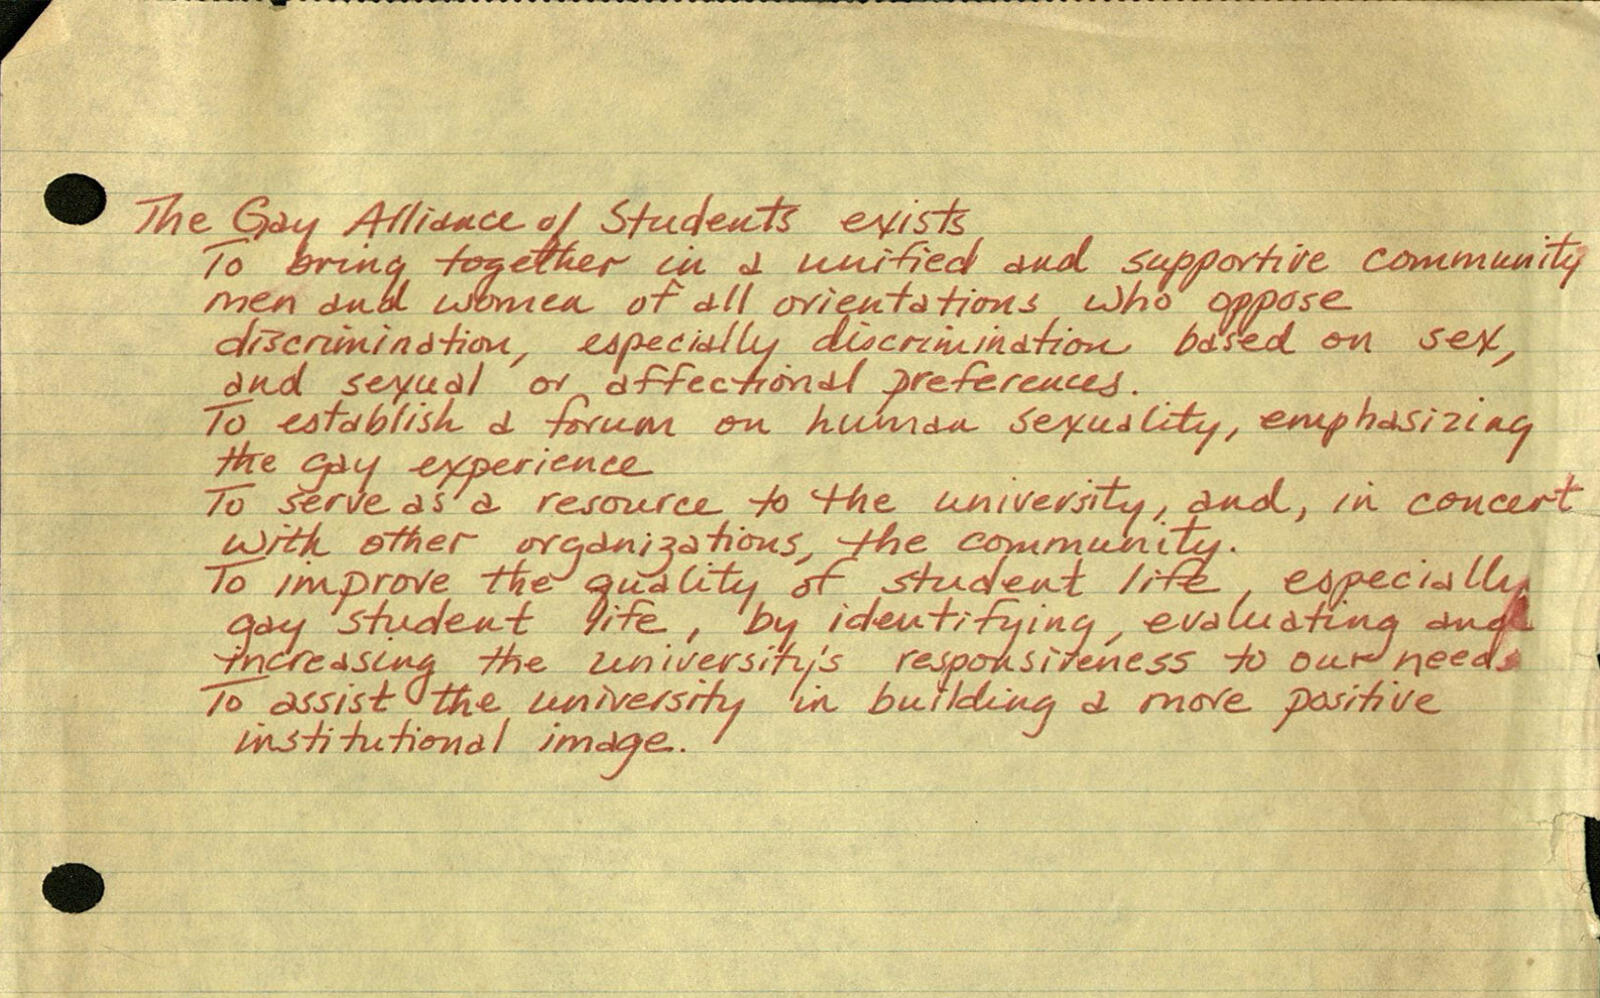 The Gay Alliance of Students exists
To bring together in a unified and supportive community
men and women of all orientations who oppose
discrimination, especially discrimination based on sex,
and sexual or affectional preferences.
To establish a forum on human sexuality, emphasizing
the gay experience
To serve as a resource to the university, and, in concert
with other organizations, the community.
To improve the quality of student life, especially
gay student life, by identifying, evaluating and
increasing the university's responsiveness to our needs
To assist the university in building a more positive
institutional image.